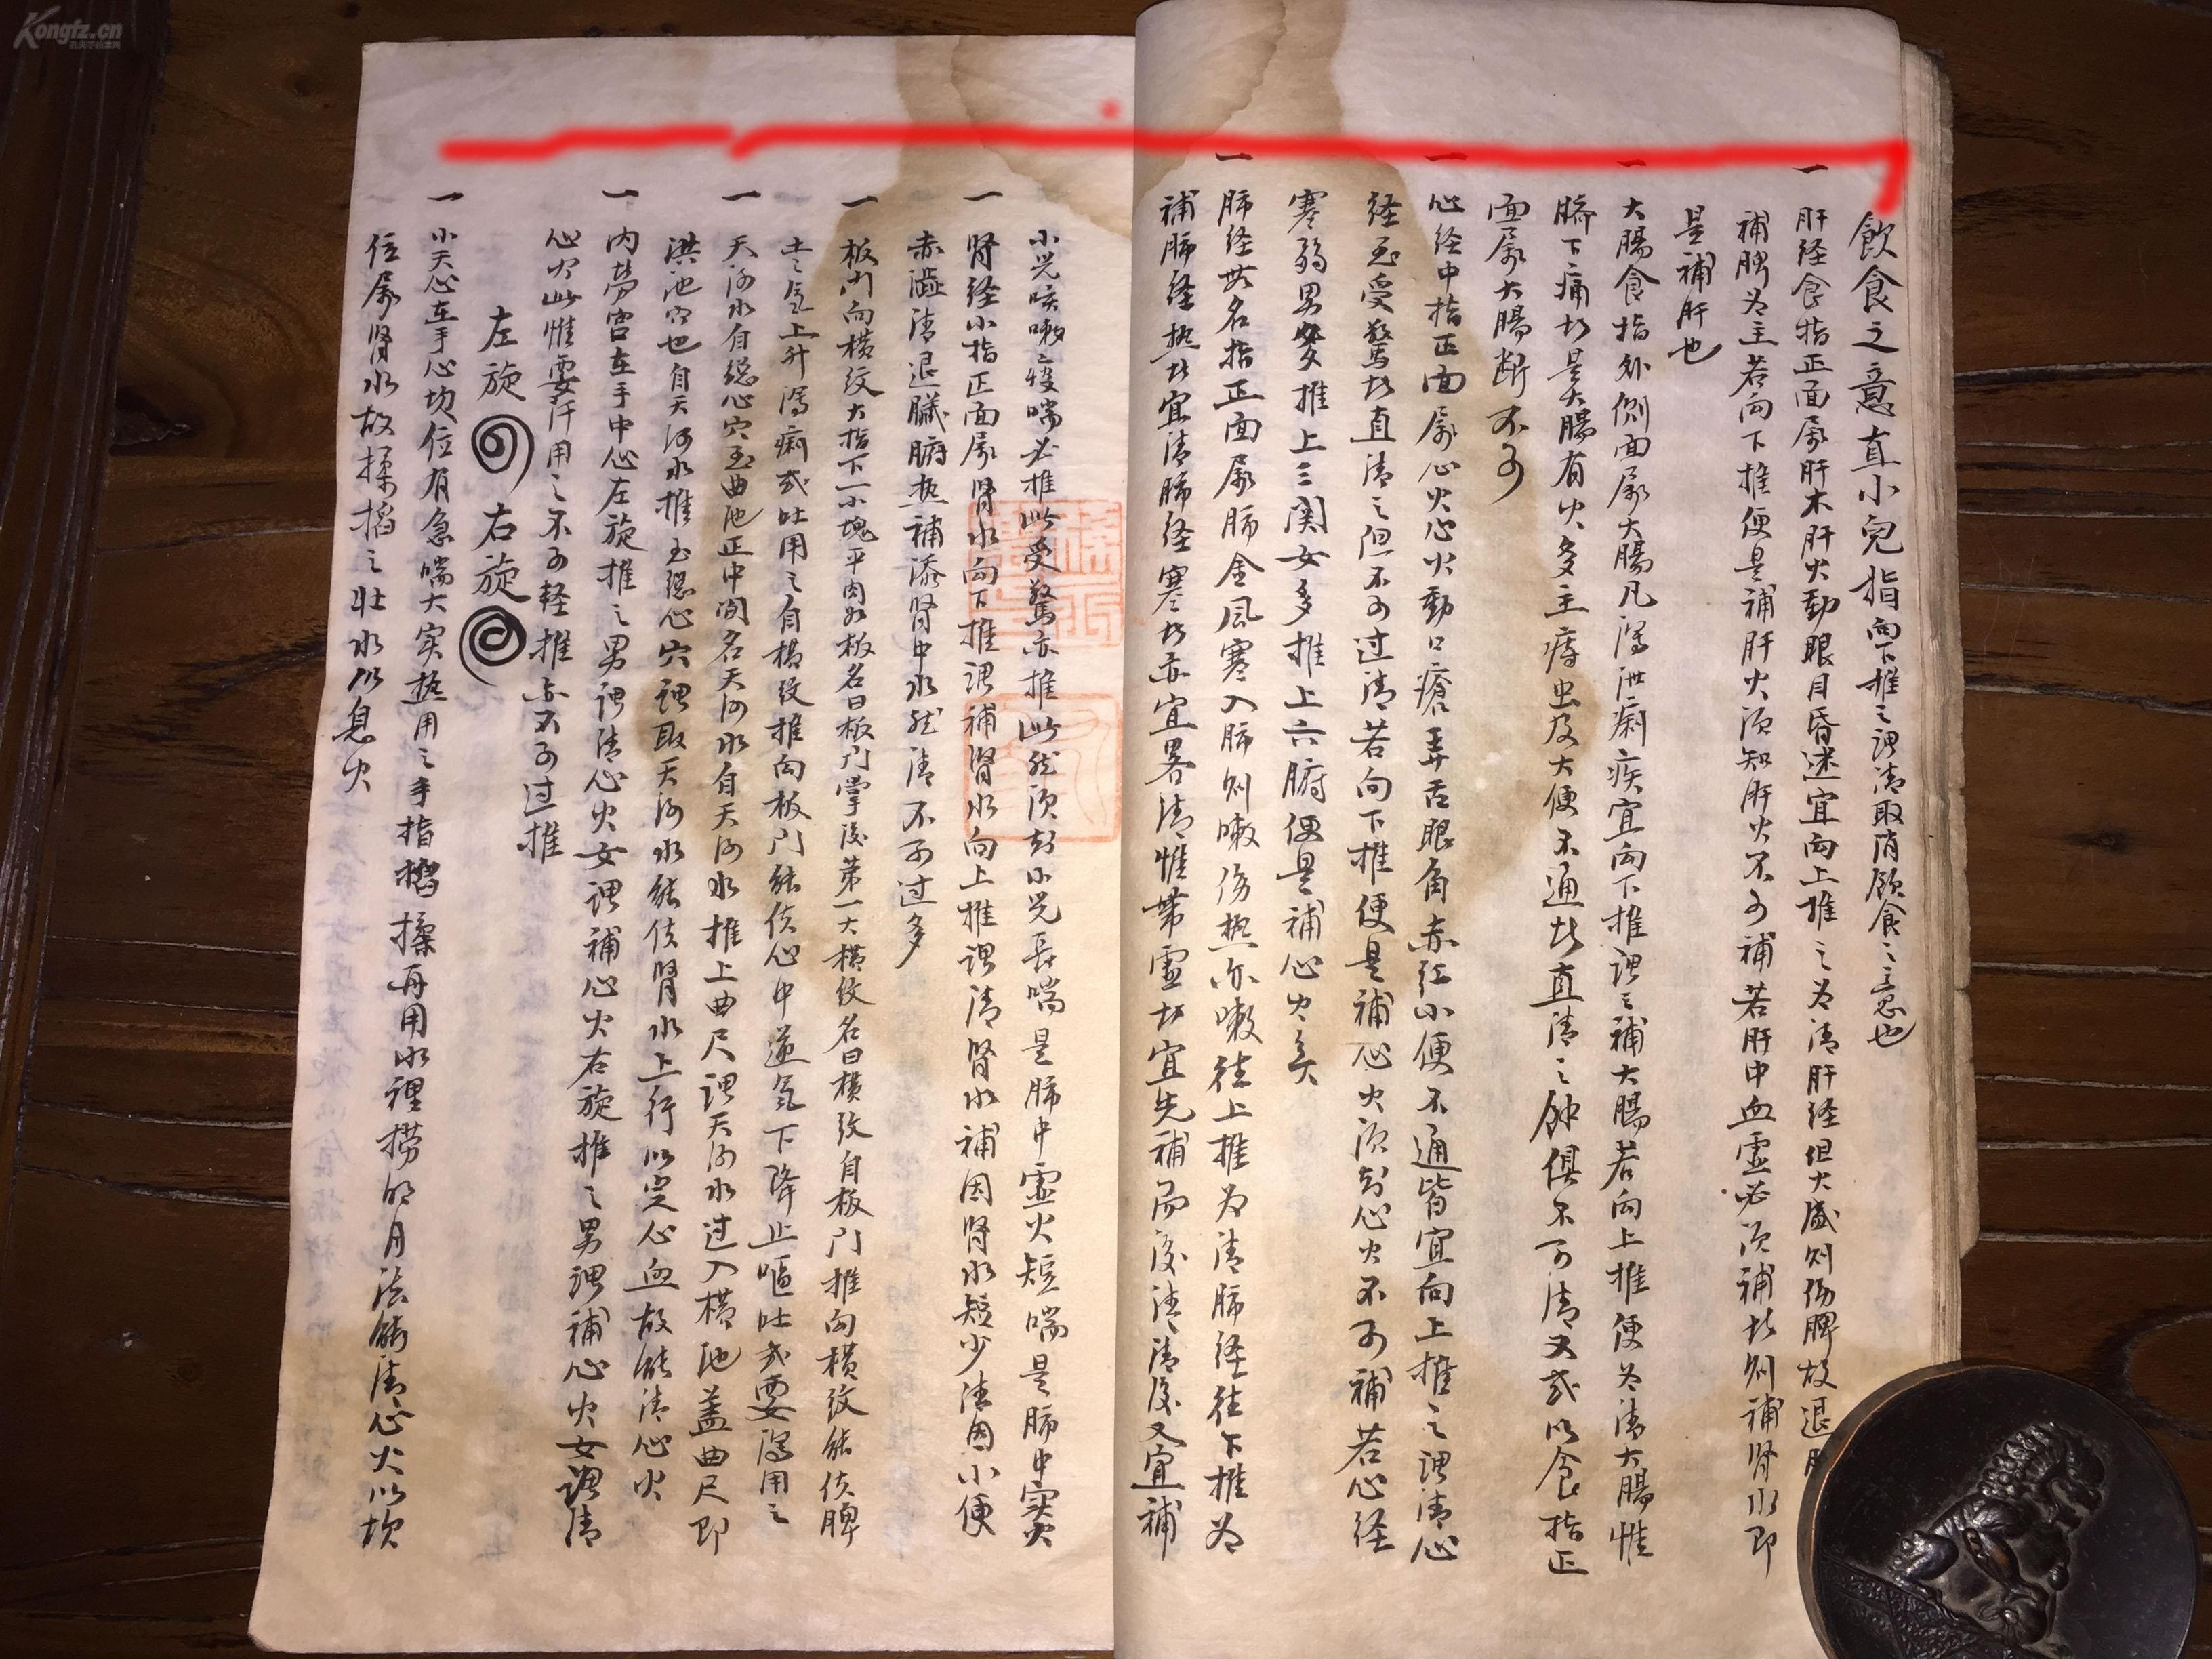 飲食之意直小兒指向下推之謂清取消飲食之意也
一肝经食指正面属肝木肝火動眼目昏迷宜向上推之为清肝经但大盛则伤脾故退
補脾为主若向下推便是補肝火须知肝火不可補若肝中血虚必须補者则補肾水即
是補肝也
一大腸食指外侧面属大腸凡瀉泄痢疾宜向下推謂之補大腸若向上推便为清大腸惟
臍下痛者是大腸有火多主痔虫及大便不通者直清之餘俱不可清又或以食指正
面属大腸断不可
一心经中指正面属心火心火動口瘡弄舌眼角赤红小便不通皆宜向上推之謂清心
经至受驚者直清之但不可过清若向下推便是補心火须知心火不可補若心经
寒弱男多推上三関女多推上六腑便是補心火矣
一肺经無名指正面属肺金風寒入肺则嗽伤热亦嗽往上推为清肺经往下推为
補肺经热者宜清肺经寒者亦宜畧清惟带虚者宜先補而後清清後又宜補
小児咳嗽痰喘必推此受驚亦推此然须知小児長喘是肺中虚火短喘是肺中實火
一肾经小指正面属肾水向下推謂補肾水向上推謂清肾水補因肾水短少清因小便
赤澁清退臟腑热補添肾中水然清不可过多
一板门向横纹大指下一小塊平肉如板名曰板门掌後第一大横纹名曰横纹自板门推向横纹能佐脾
土之氣上升瀉痢或吐用之自横纹推向板门能佐心中逆氣下降止嘔吐或要瀉用之
一天河水自總心穴至曲池正中間名天河水自天河水推上曲尺謂天河水过入横池盖曲尺即
洪池穴也自天河水推至總心穴謂取天河水能佐肾水上行以安心血故能清心火
一内勞宫在手中心左旋推之男謂清心火女謂補心火右旋推之男謂補心火女謂清
心火此惟要汗用之不可轻推亦不可过推
左旋 右旋
一小天心在手心坎位有急喘大实热用之手指搯揉再用水裡捞明月法能清心火以坎
位属肾水故揉搯之壮水以息火
Kongfz.cn